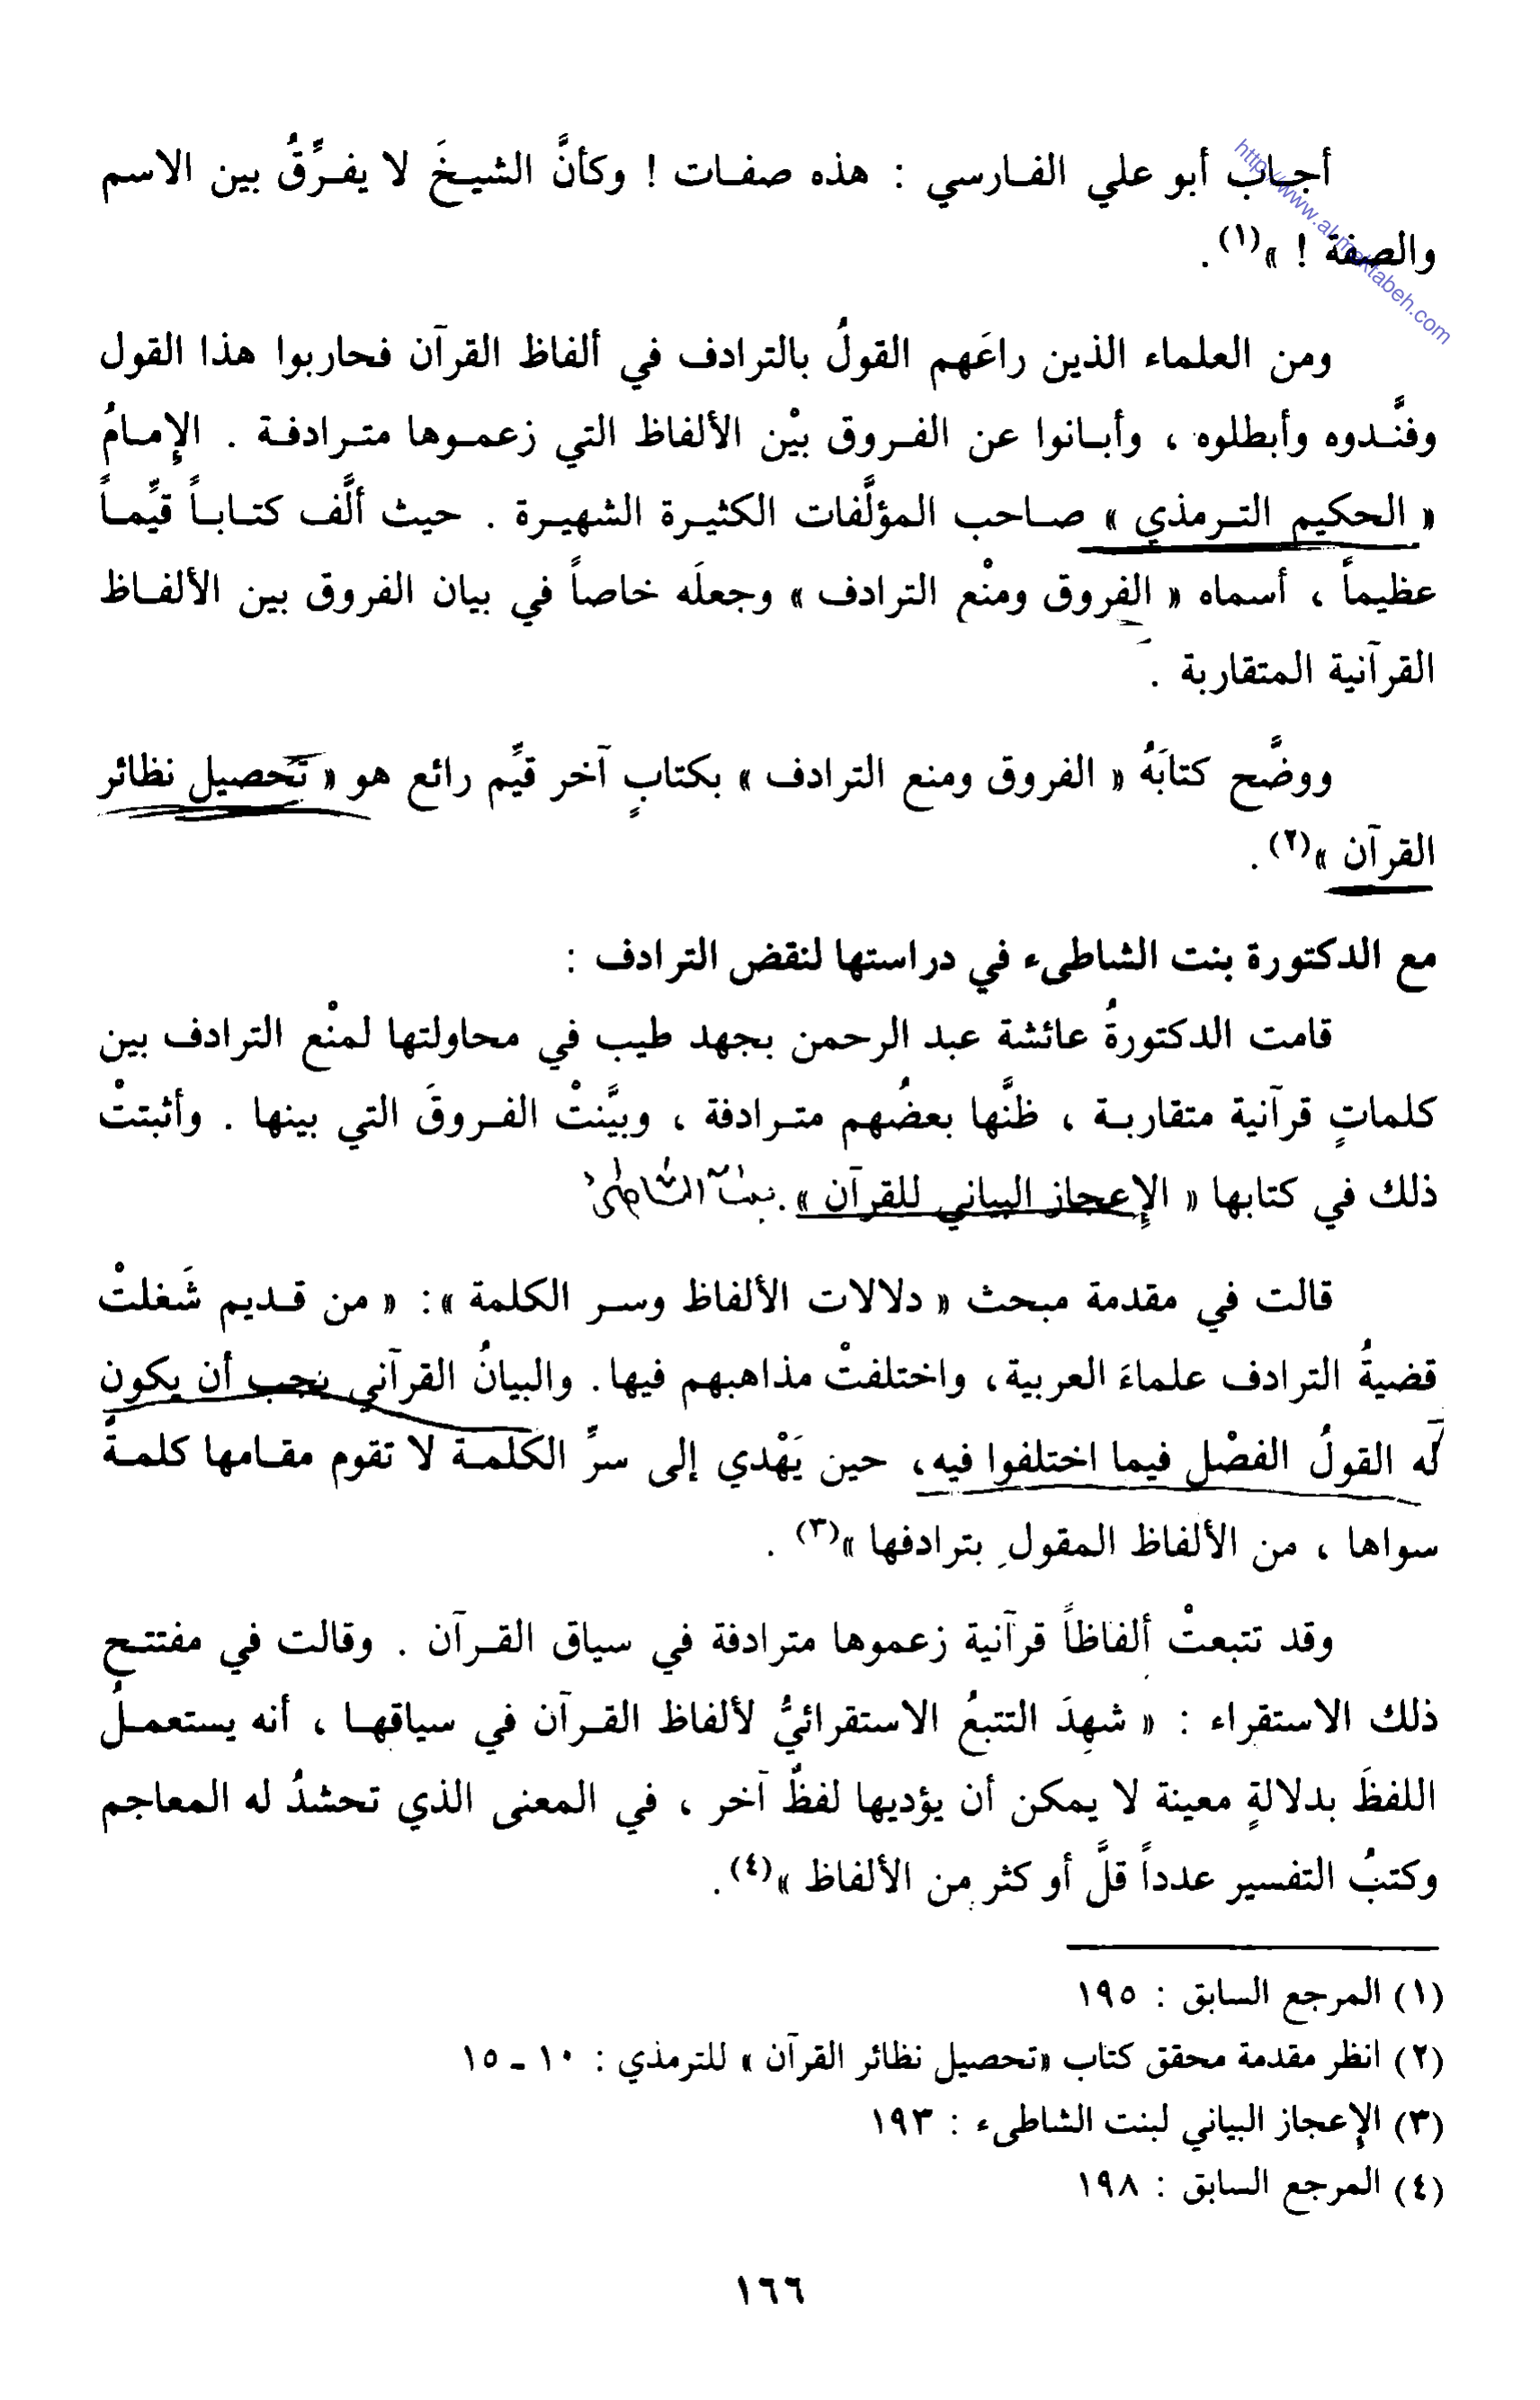 أجـاب أبو علي الفـارسي : هذه صفـات ! وكأنَّ الشيـخَ لا يفـرِّقُ بين الاسم
والصفة ! »(١) .
http://www.al-maktabeh.com
ومن العلماء الذين راعَهم القولُ بالترادف في ألفاظ القرآن فحاربوا هذا القول
وفنَّـدوه وأبطلوه ، وأبـانوا عن الفـروق بيْن الألفاظ التي زعمـوها متـرادفـة . الإمـامُ
« الحكيم التـرمذي » صـاحب المؤلَّفات الكثيـرة الشهيـرة . حيث ألَّف كتـابـاً قيِّمـاً
عظيماً ، أسماه « الفروق ومنْع الترادف » وجعلَه خاصاً في بيان الفروق بين الألفـاظ
القرآنية المتقاربة .
ووضَّح كتابَهُ « الفروق ومنع الترادف » بكتابٍ آخر قيِّم رائع هو « تحصيل نظائر
القرآن »(٢) .
مع الدكتورة بنت الشاطىء في دراستها لنقض الترادف :
قامت الدكتورةُ عائشة عبد الرحمن بجهد طيب في محاولتها لمنْع الترادف بين
كلماتٍ قرآنية متقاربـة ، ظنَّها بعضُهم متـرادفة ، وبيَّنتْ الفـروقَ التي بينها . وأثبتتْ
ذلك في كتابها « الإعجاز البياني للقرآن » . بنت الشاطئ
قالت في مقدمة مبحث « دلالات الألفاظ وسـر الكلمة »: « من قـديم شَغلتْ
قضيةُ الترادف علماءَ العربية، واختلفتْ مذاهبهم فيها. والبيانُ القرآني يجب أن يكون
له القولُ الفصْل فيما اختلفوا فيه، حين يَهْدي إلى سرِّ الكلمـة لا تقوم مقـامها كلمـةٌ
سواها ، من الألفاظ المقولِ بترادفها »(٣) .
وقد تتبعتْ ألفاظاً قرآنية زعموها مترادفة في سياق القـرآن . وقالت في مفتتـح
ذلك الاستقراء : « شهِدَ التتبعُ الاستقرائيُّ لألفاظ القـرآن في سياقهـا ، أنه يستعمـلُ
اللفظَ بدلالةٍ معينة لا يمكن أن يؤديها لفظٌ آخر ، في المعنى الذي تحشدُ له المعاجم
وكتبُ التفسير عدداً قلَّ أو كثر من الألفاظ »(٤) .
(١) المرجع السابق : ١٩٥
(٢) انظر مقدمة محقق كتاب «تحصيل نظائر القرآن » للترمذي : ١٠ - ١٥
(٣) الإعجاز البياني لبنت الشاطىء : ١٩٣
(٤) المرجع السابق : ١٩٨
١٦٦